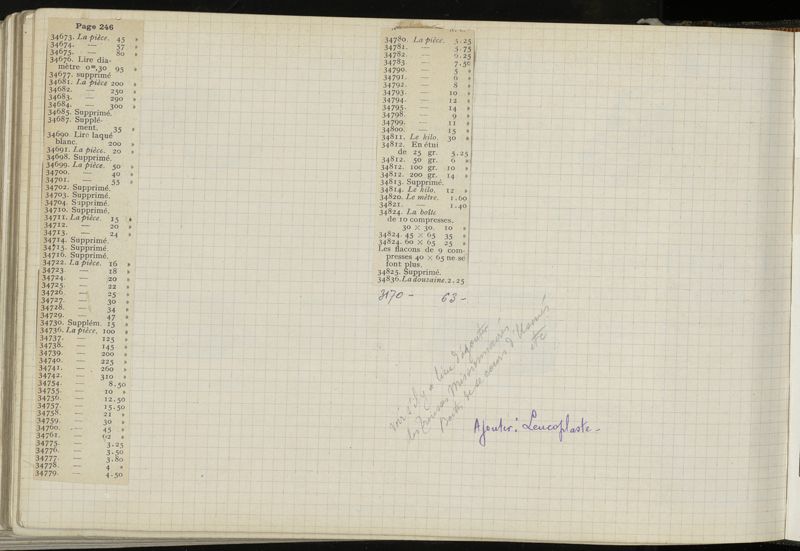 Page 246
34673. La pièce. 45 »
34674. — 57 »
34675. — 80 »
34676. Lire dia-
mètre 0m,30 95 »
34677. supprimé
34681. La pièce 200 »
34682. — 250 »
34683. — 290 »
34684. — 300 »
34685. Supprimé.
34687. Supplé-
ment. 35 »
34690. Lire laqué
blanc. 200 »
34691. La pièce. 20 »
34698. Supprimé.
34699. La pièce. 50 »
34700. — 40 »
34701. — 55 »
34702. Supprimé.
34703. Supprimé.
34704. Supprimé.
34710. Supprimé.
34711. La pièce. 15 »
34712. — 20 »
34713. — 24 »
34714. Supprimé.
34715. Supprimé.
34716. Supprimé.
34722. La pièce. 16 »
34723. — 18 »
34724. — 20 »
34725. — 22 »
34726. — 25 »
34727. — 30 »
34728. — 34 »
34729. — 47 »
34730. Supplém. 15 »
34736. La pièce. 100 »
34737. — 125 »
34738. — 145 »
34739. — 200 »
34740. — 225 »
34741. — 260 »
34742. — 310 »
34754. — 8.50
34755. — 10 »
34756. — 12.50
34757. — 15.50
34758. — 21 »
34759. — 30 »
34760. — 45 »
34761. — 62 »
34775. — 3.25
34776. — 3.50
34777. — 3.80
34778. — 4 »
34779. — 4.50
34780. La pièce. 5.25
34781. — 5.75
34782. — 6.25
34783. — 7.50
34790. — 5 »
34791. — 6 »
34792. — 8 »
34793. — 10 »
34794. — 12 »
34795. — 14 »
34798. — 9 »
34799. — 11 »
34800. — 15 »
34811. Le kilo. 30 »
34812. En étui
de 25 gr. 5.25
34812. 50 gr. 6 »
34812. 100 gr. 10 »
34812. 200 gr. 14 »
34813. Supprimé.
34814. Le kilo. 12 »
34820. Le mètre. 1.60
34821. — 1.40
34824. La boîte
de 10 compresses.
30 × 30. 10 »
34824. 45 × 65 35 »
34824. 60 × 65 25 »
Les flacons de 9 com-
presses 40 × 65 ne se
font plus.
34825. Supprimé.
34836. La douzaine. 2.25
3170 - 63 -
voir s'il y a lieu d'ajouter
les trousses Missionnaires,
etc
Ajouter : Leucoplaste -